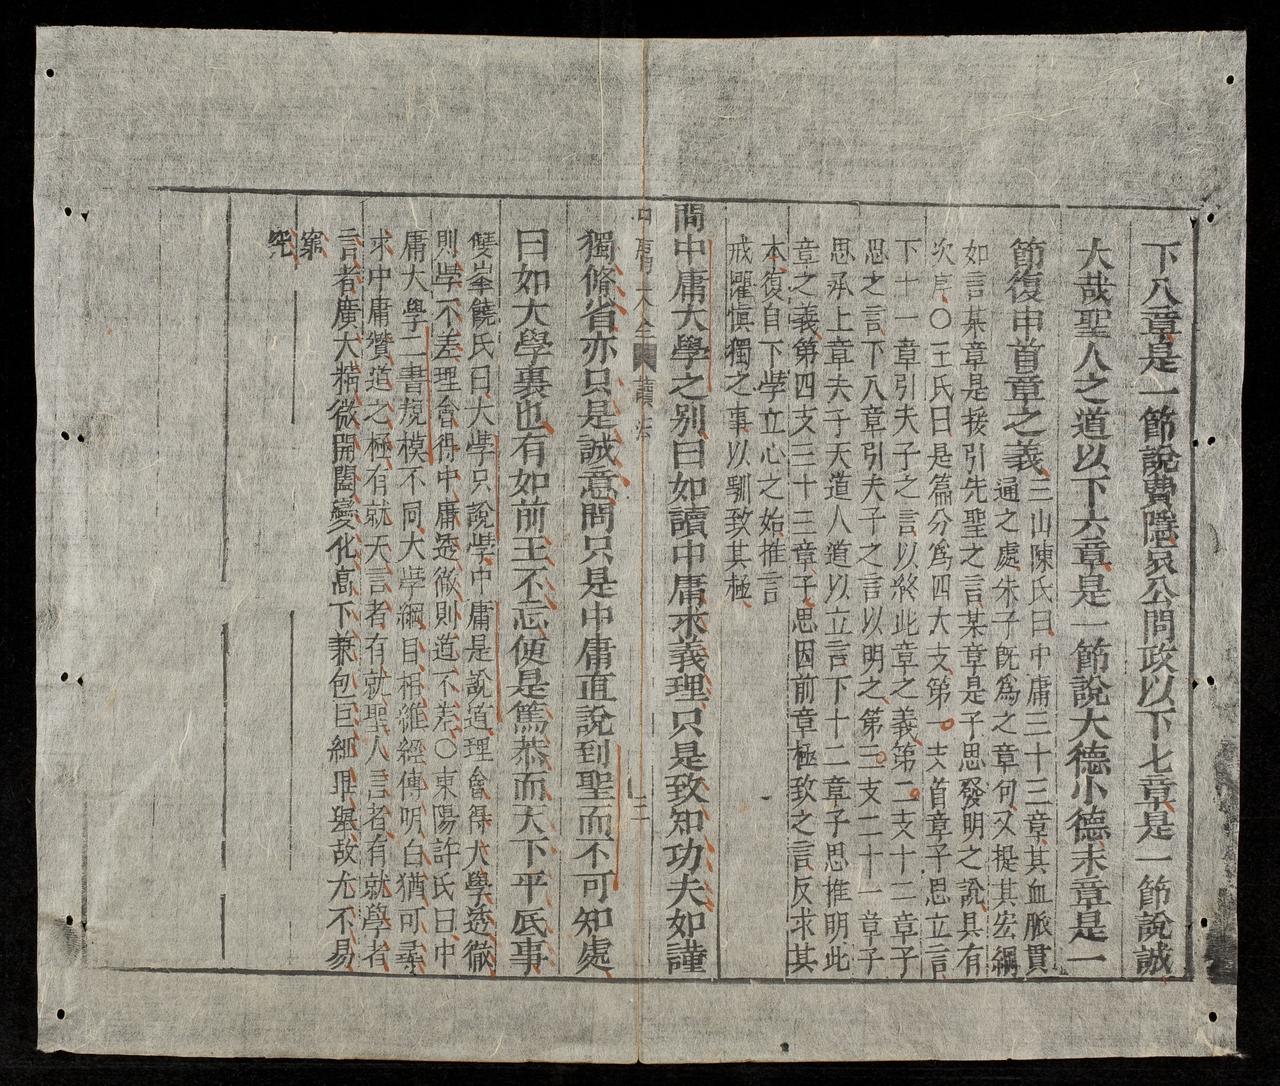 下八章是一節說費隱哀公問政以下七章是一節說誠
大哉聖人之道以下六章是一節說大德小德末章是一
節復申首章之義
三山陳氏曰中庸三十三章其血脈貫
通之處朱子既爲之章句又提其宏綱
如言某章是援引先聖之言某章是子思發明之說具有
次序〇王氏曰是篇分爲四大支第一支首章子思立言
下十一章引夫子之言以終此章之義第二支十二章子
思之言下八章引夫子之言以明之第三支二十一章子
思承上章夫子天道人道以立言下十二章子思推明此
章之義第四支三十三章子思因前章極致之言反求其
本復自下學立心之始推言
戒懼愼獨之事以馴致其極
問中庸大學之别曰如讀中庸求義理只是致知功夫如謹
中庸大全 讀法 三
獨脩省亦只是誠意問只是中庸直說到聖而不可知處
曰如大學裏也有如前王不忘便是篤恭而天下平底事
雙峯饒氏曰大學只說學中庸是說道理會得大學透徹
則學不差理會得中庸透徹則道不差〇東陽許氏曰中
庸大學二書規模不同大學綱目相維經傳明白猶可尋
求中庸贊道之極有就天言者有就聖人言者有就學者
言者廣大精微開闔變化高下兼包巨細畢舉故尤不易
窮
究